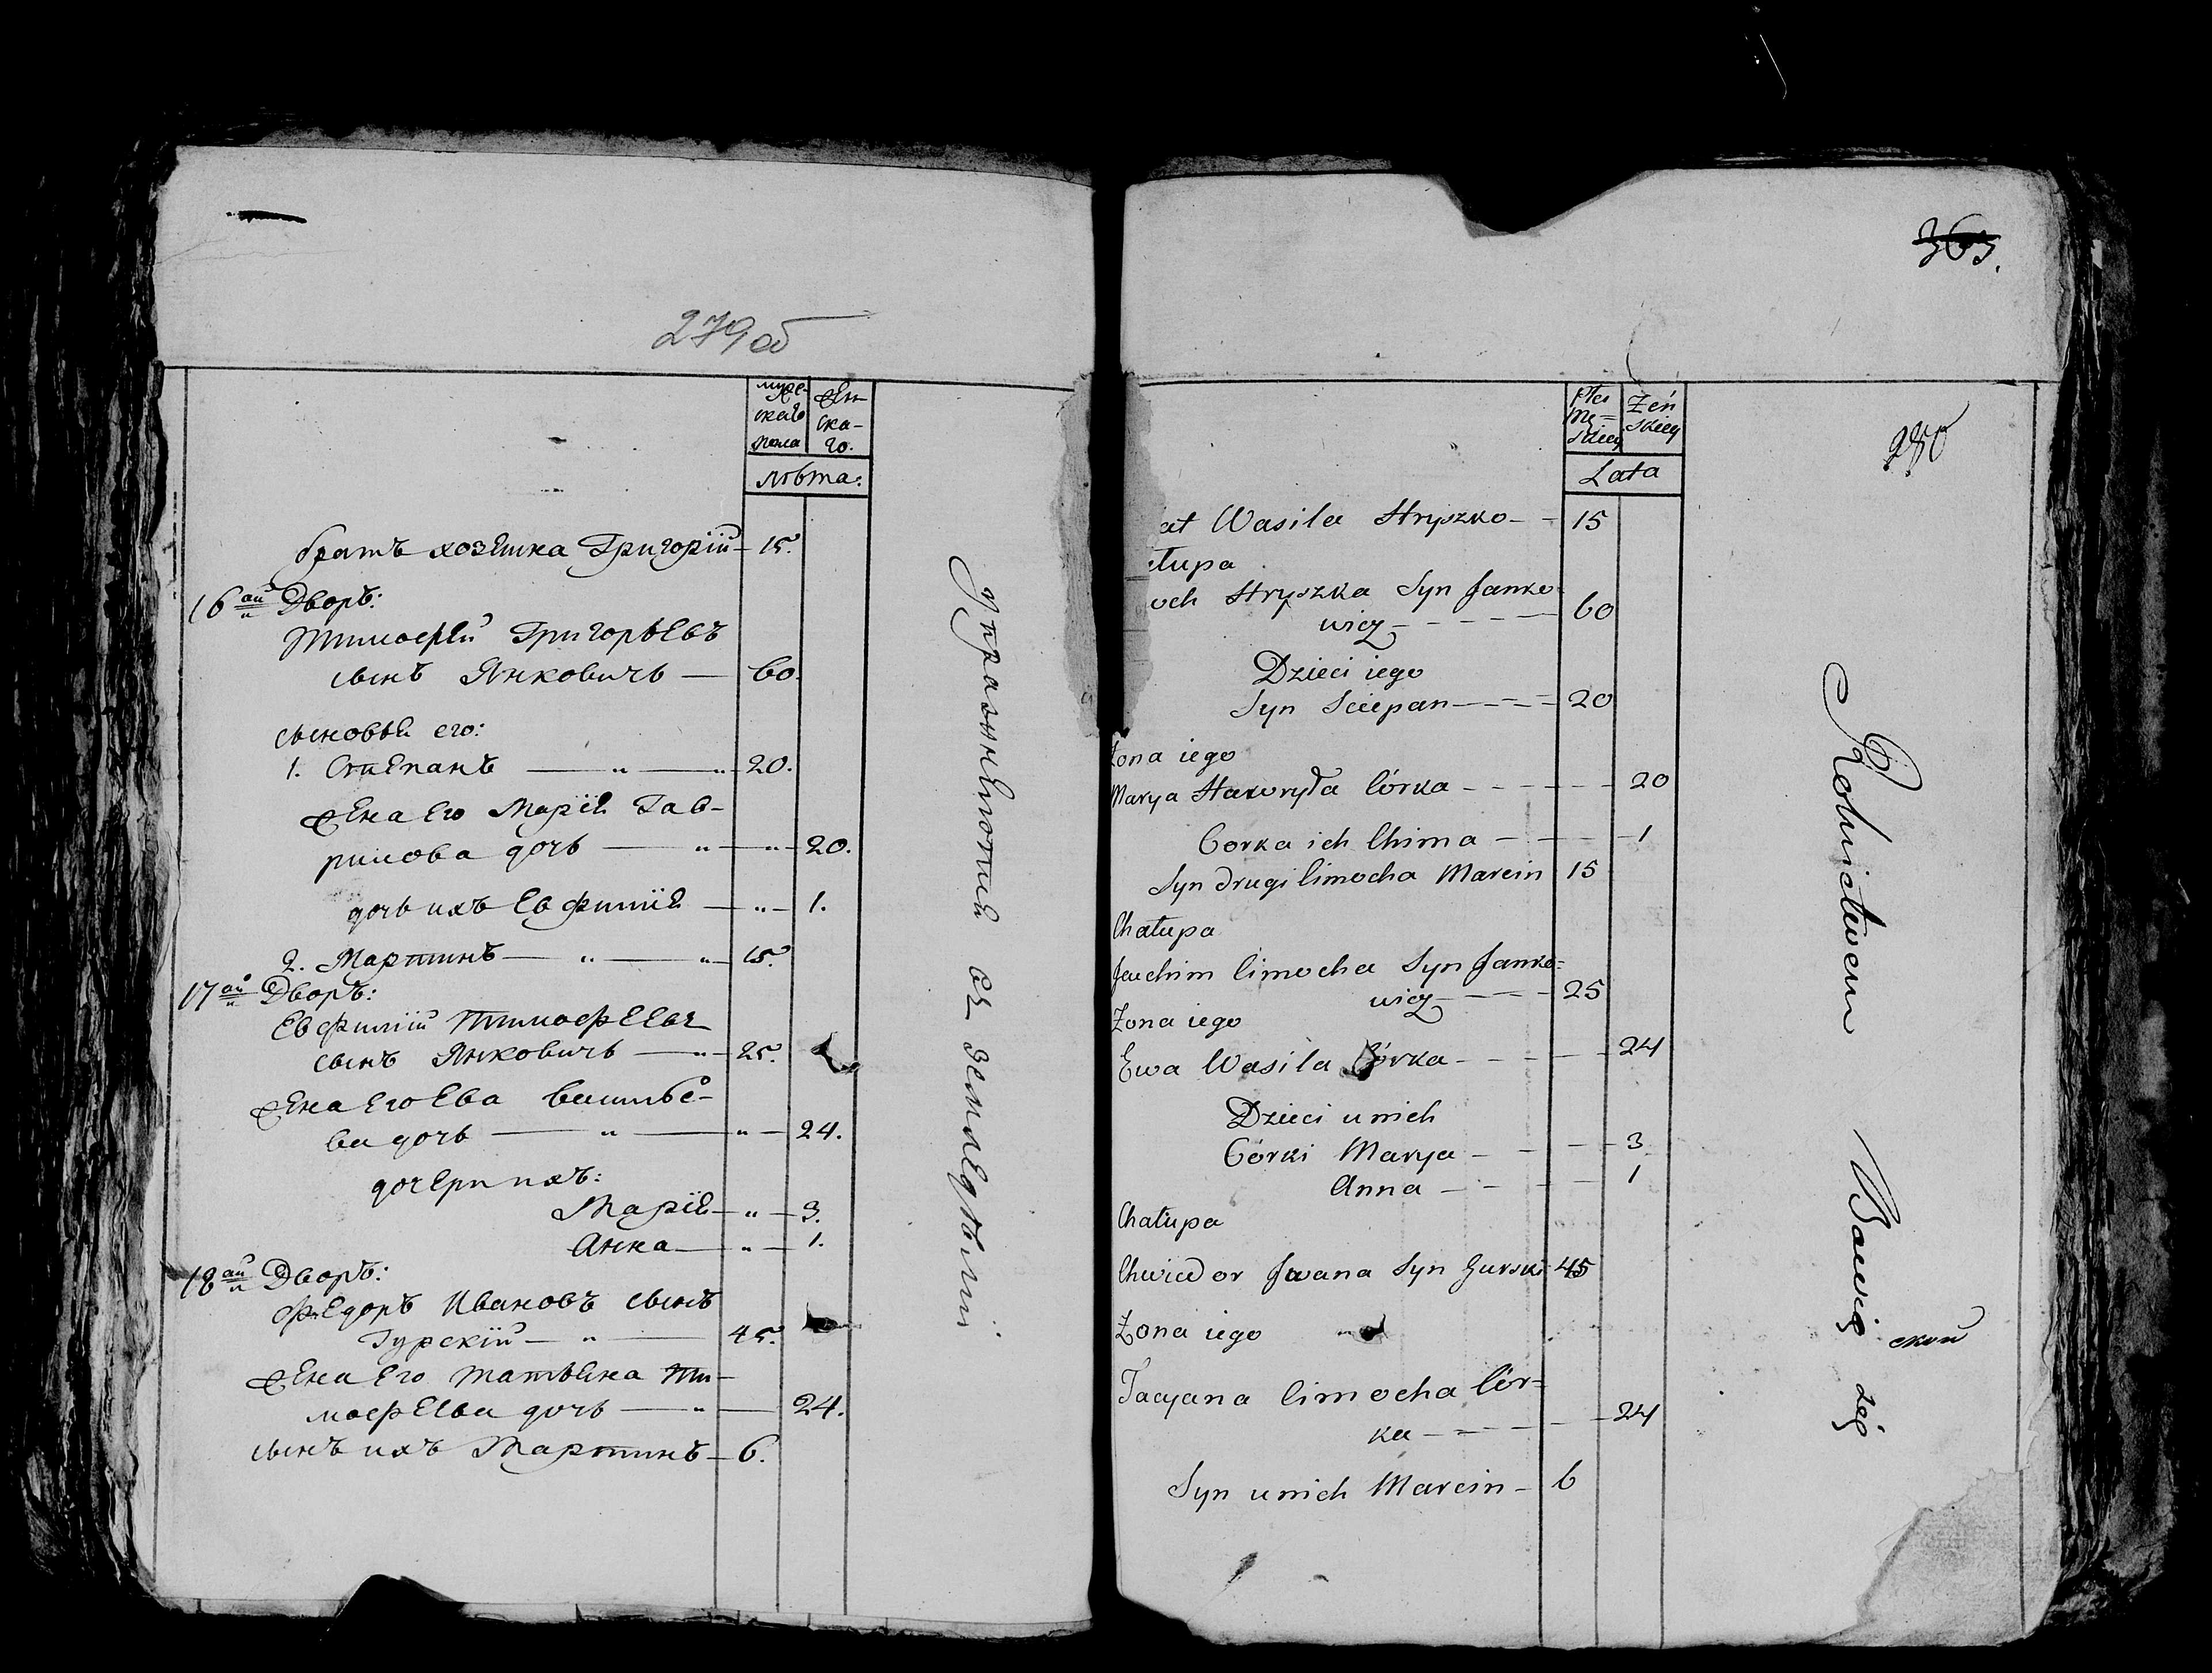 279 об
муже-
скаго
пола
жен-
ска-
го.
лѣта:
братъ хозяина Григорій — 15.
16ый Дворъ:
Тимофей Григорьевъ
сынъ Янковичъ — 60.
сыновья его:
1. Степанъ — " — " 20.
жена его Марія Гав-
рилова дочь — " — " — 20.
дочь ихъ Евфимія — " — 1.
2. Мартинъ — " — " 15.
17ый Дворъ:
Евфимій Тимофеевъ
сынъ Янковичъ — " 25.
жена его Ева Василье-
ва дочь — " — " — 24.
дочери ихъ:
Марія — " — 3.
Анна — " — 1.
18ый Дворъ:
Федоръ Ивановъ сынъ
Гурскій — " — 45.
жена его Татьяна Ти-
мофеева дочь — " — 24.
сынъ ихъ Мартинъ — 6.
Упражняются въ земледѣліи
363.
280
płci
Mę=
skiey
Żeń
skiey
Lata
at Wasila Hryszko - - 15
łupa
och Hryszka Syn Janko=
wicz - - - - 60
Dzieci iego
Syn Sciepan - - - - 20
Żona iego
Marya Hawryła Córka - - - - 20
Corka ich Chima - - - 1
Syn drugi Cimocha Marcin 15
Chałupa
Jauchim Cimocha Syn Janko=
wicz - - - - 25
Żona iego
Ewa Wasila Córka - - - - 24
Dzieci u nich
Córki Marya - - - 3
Anna - - - - 1
Chałupa
Chwiedor Jwana Syn Gurski 45
Żona iego
Tacyana Cimocha Cór=
ka - - - - 24
Syn u nich Marcin - 6
Rolnictwem Bawią się